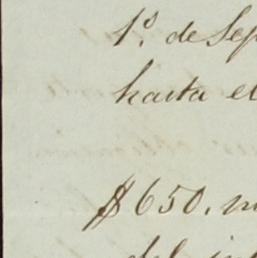 1º. de Sep
hasta el
$650. m
del in